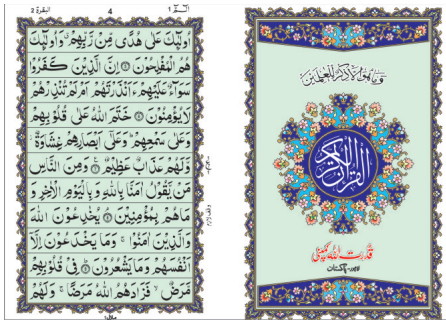 البقرة ٢
4
الٓمّٓ ١
اُولٰٓئِكَ عَلٰى هُدًى مِّنْ رَّبِّهِمْ ۗ وَاُولٰٓئِكَ
هُمُ الْمُفْلِحُوْنَ ۝ اِنَّ الَّذِيْنَ كَفَرُوْا
سَوَآءٌ عَلَيْهِمْ ءَاَنْذَرْتَهُمْ اَمْ لَمْ تُنْذِرْهُمْ
لَا يُؤْمِنُوْنَ ۝ خَتَمَ اللّٰهُ عَلٰى قُلُوْبِهِمْ
وَعَلٰى سَمْعِهِمْ ؕ وَعَلٰٓى اَبْصَارِهِمْ غِشَاوَةٌ
وَّلَهُمْ عَذَابٌ عَظِيْمٌ ۝ وَمِنَ النَّاسِ
مَنْ يَّقُوْلُ اٰمَنَّا بِاللّٰهِ وَبِالْيَوْمِ الْاٰخِرِ وَ
مَا هُمْ بِمُؤْمِنِيْنَ ۝ يُخٰدِعُوْنَ اللّٰهَ
وَالَّذِيْنَ اٰمَنُوْا ۚ وَمَا يَخْدَعُوْنَ اِلَّآ
اَنْفُسَهُمْ وَمَا يَشْعُرُوْنَ ۝ فِيْ قُلُوْبِهِمْ
مَّرَضٌ ۙ فَزَادَهُمُ اللّٰهُ مَرَضًا ۚ وَلَهُمْ
وَمَا هُوَ اِلَّا ذِكْرٌ لِّلْعٰلَمِيْنَ
القرآن الكريم
قدرت اللہ کمپنی
لاہور۔ پاکستان